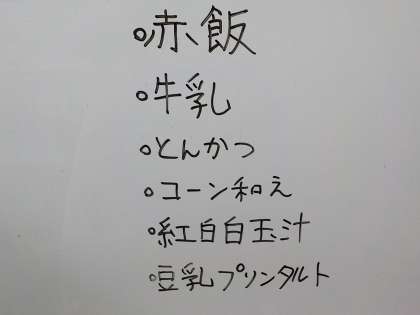 ○赤飯
○牛乳
○とんかつ
○コーン和え
○紅白白玉汁
○豆乳プリンタルト